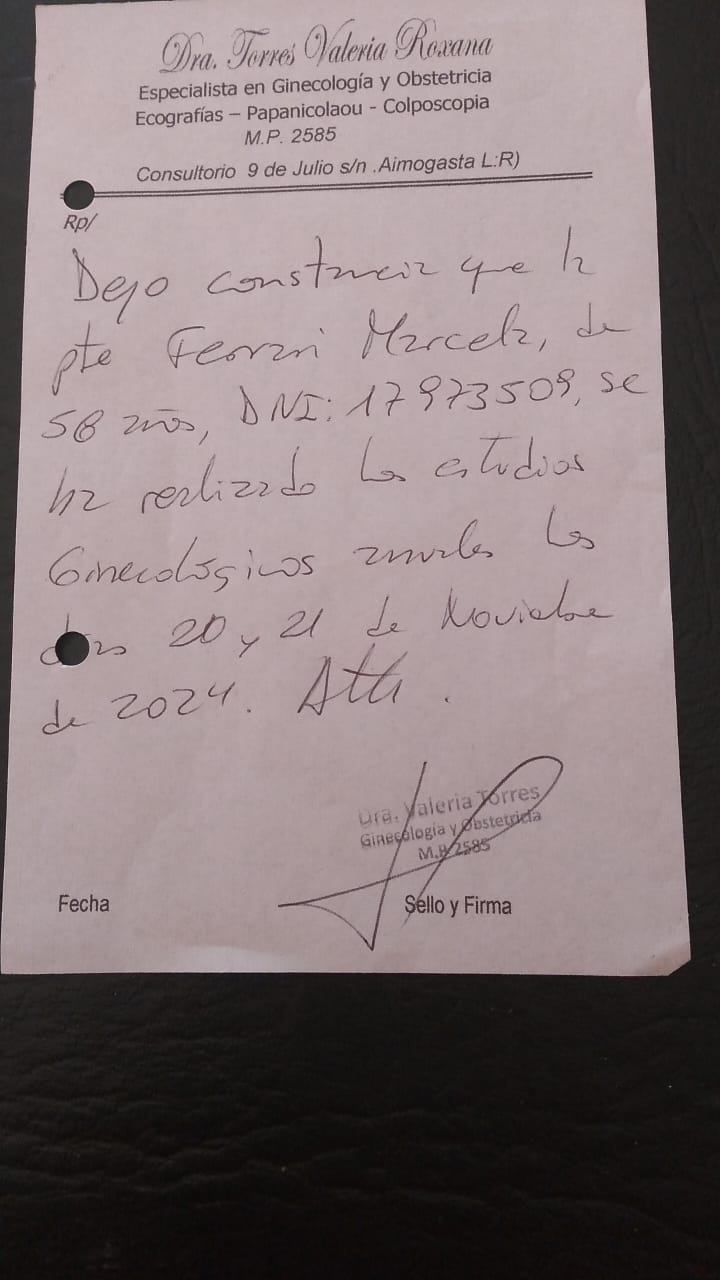 Dra. Torres Valeria Roxana
Especialista en Ginecología y Obstetricia
Ecografías – Papanicolaou - Colposcopia
M.P. 2585
Consultorio 9 de Julio s/n .Aimogasta L:R)
Rp/
Dejo constancia que la
pte Ferrari Marcela, de
58 años, DNI: 17973509, se
ha realizado los estudios
Ginecológicos anuales los
días 20 y 21 de Noviembre
de 2024. Atte.
Dra. Valeria Torres
Ginecología y Obstetricia
M.P. 2585
Fecha
Sello y Firma